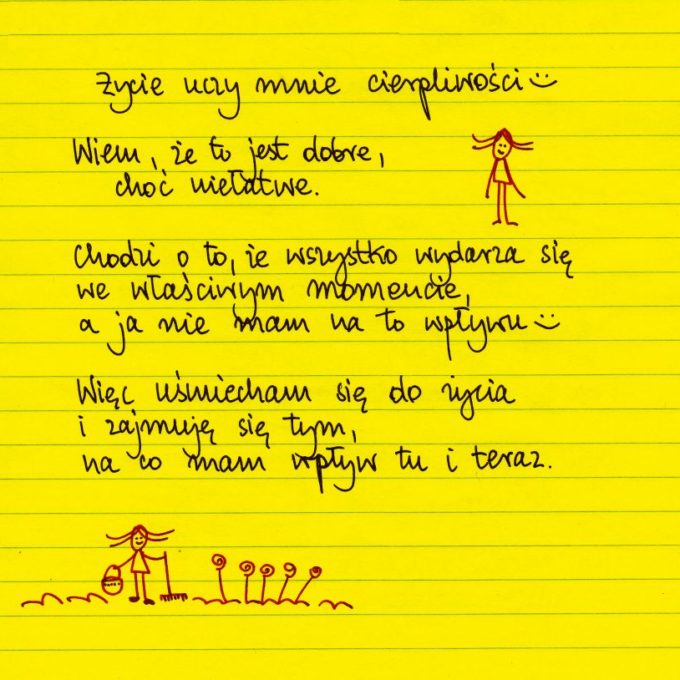 Życie uczy mnie cierpliwości :)
Wiem, że to jest dobre,
choć niełatwe.
Chodzi o to, że wszystko wydarza się
we właściwym momencie,
a ja nie mam na to wpływu :)
Więc uśmiecham się do życia
i zajmuję się tym,
na co mam wpływ tu i teraz.